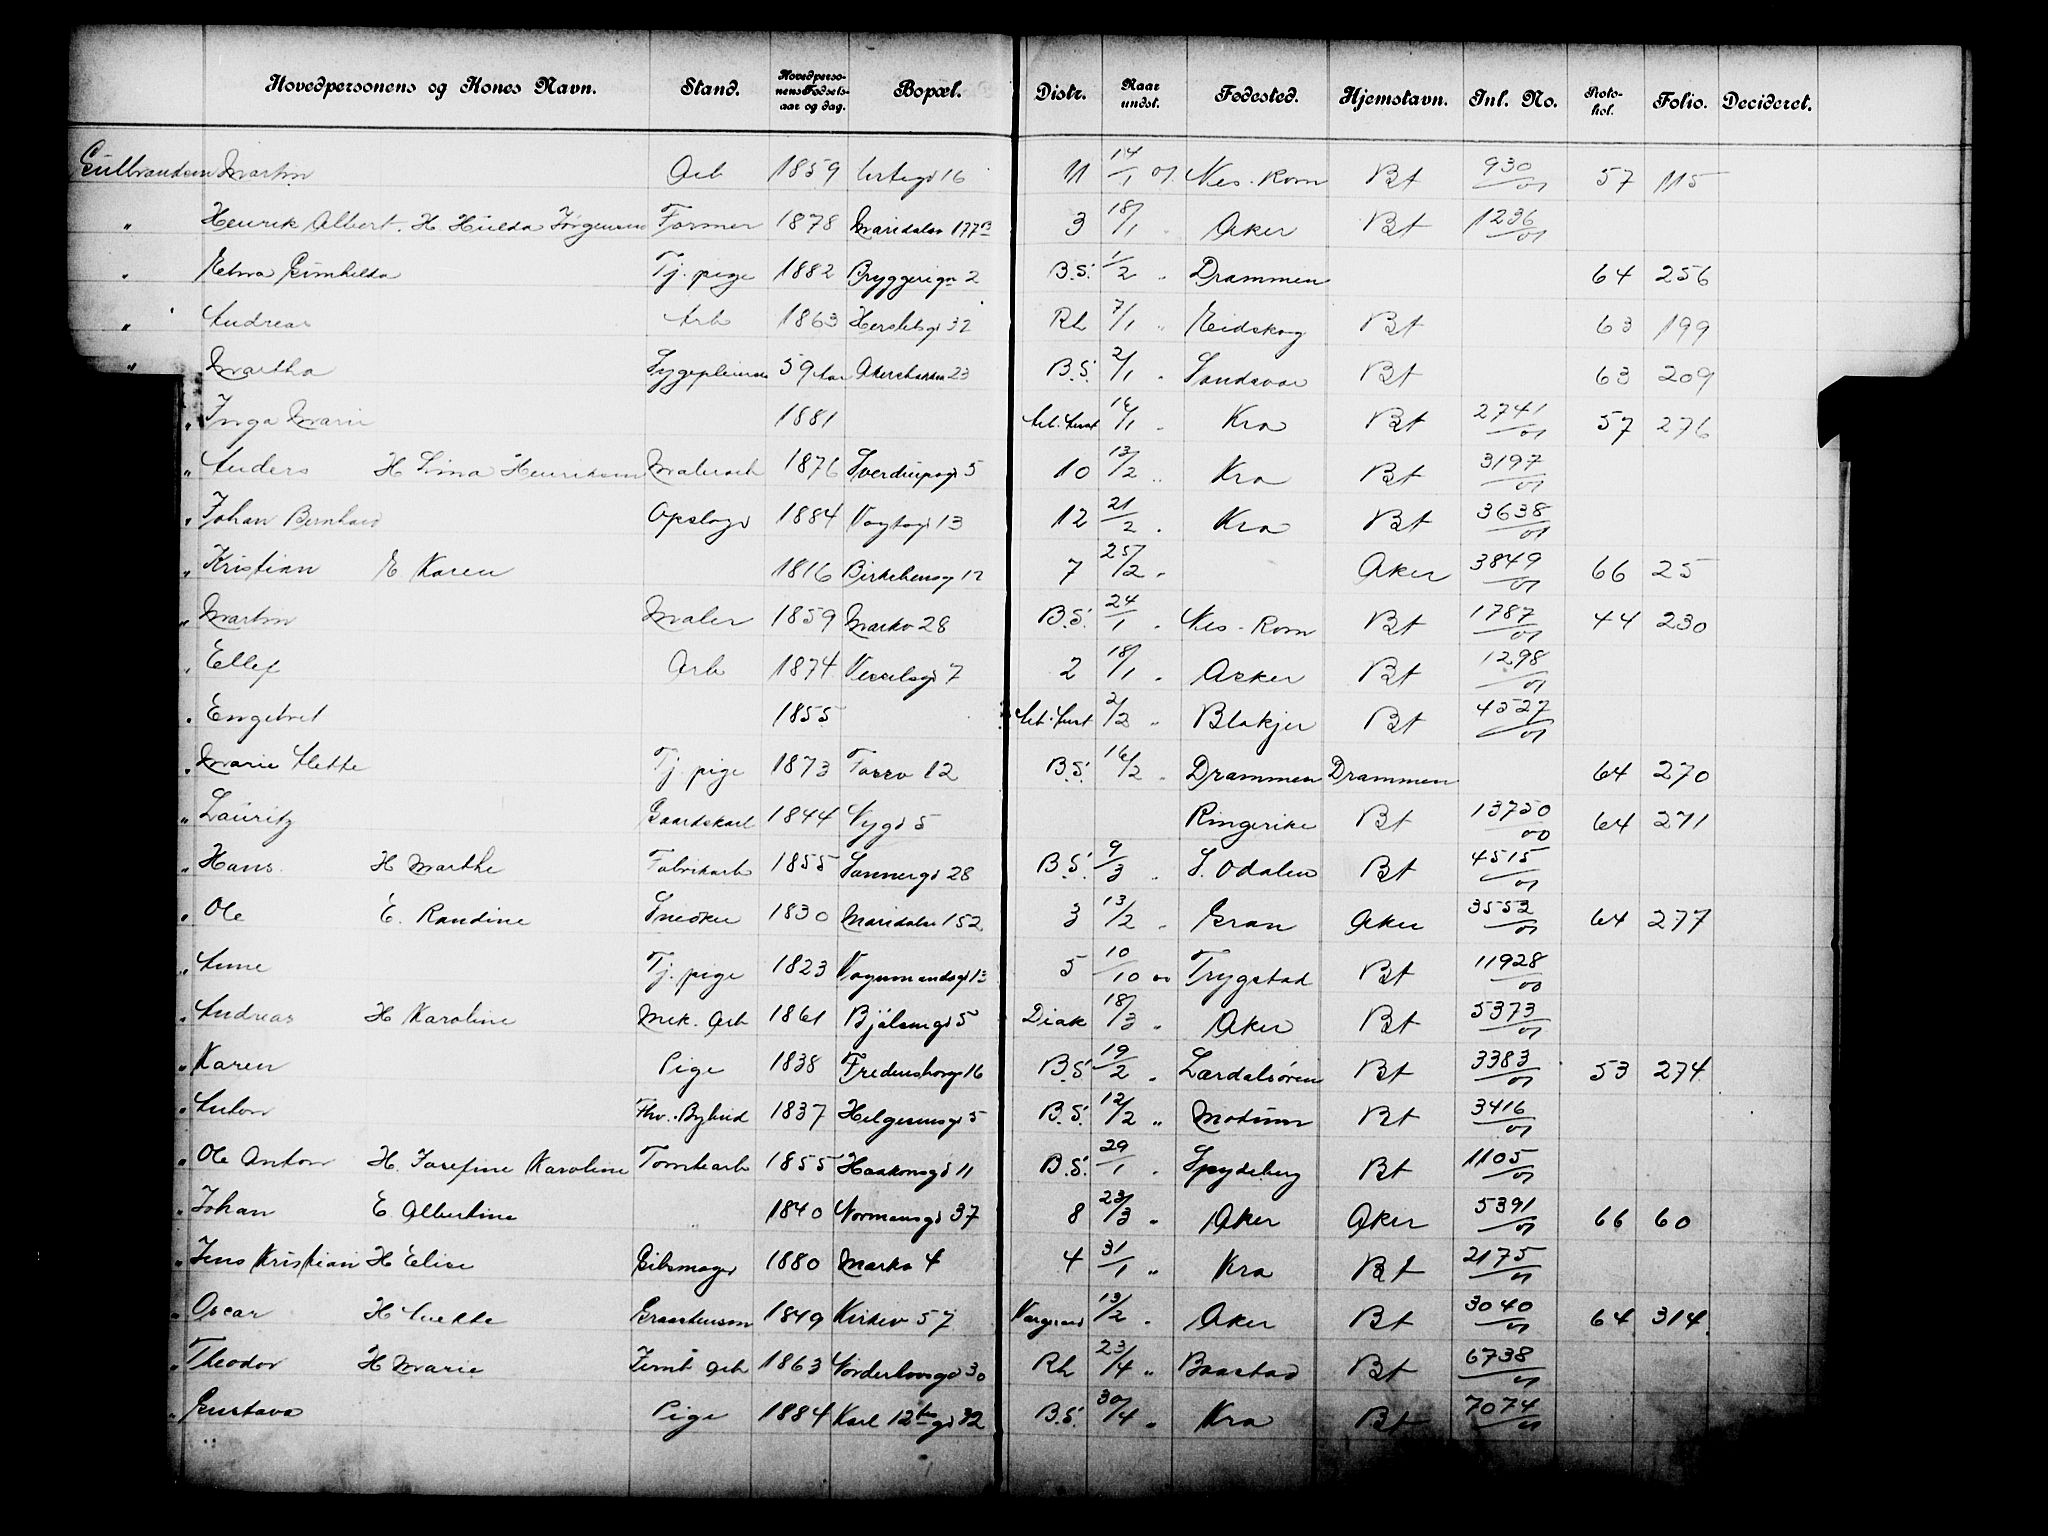 Hovedpersonens og Kones Navn. Stand. Hovedperso-nens Fødsels-aar og dag. Bopæl. Distr. Naar undst. Fødested. Hjemstavn. Inl. No. Proto-kol. Folio. Decideret.
Gulbrandsen Martin Arb 1859 16 11 14/1 01 Nes. Rom Bt 930/01 57 115
" Henrik Albert. H. Hulda Jørgensen Former 1878 Maridalsv 177B 3 18/1 " Aker Bt 1236/01
" Gunhilda Tj. pige 1882 Bryggerigt 2 B.S. 1/2 " Drammen 64 256
" Andreas Arb 1863 Herslebsgt 32 Rh 7/1 " Eidskog Bt 63 199
" Martha Sygepleierske 59 Aar Akersbakken 23 B.S. 2/1 " Sandsvær Bt 63 209
" Inga Marie 1881 16/1 " Kra Bt 2741/01 57 276
" Anders H Lina Henriksen Malerarb 1876 Sverdrupsgt 5 10 13/2 " Kra Bt 3197/01
" Johan Bernhard Opslagr 1884 Vogtsgt 13 12 21/2 " Kra Bt 3638/01
" Kristian E Karen 1816 Birkebeinergt 12 7 25/2 " Aker 3849/01 66 25
" Martin Maler 1859 Markv 28 B.S. 24/1 " Nes. Rom Bt 1787/01 44 230
" Ellef Arb 1874 Vesselsgt 7 2 18/1 " Asker Bt 1298/01
" Engebret 1855 2/2 " Blakjer Bt 4527/01
" Marie Mette Tj. pige 1873 Torvv 12 B.S. 16/2 " Drammen Drammen 64 270
" Lauritz Gaardskarl 1844 Nygt 5 Ringerike Bt 13750/00 64 271
" Hans. H Marthe Fabrikarb 1855 Sannergt 28 B.S. 9/3 " S. Odalen Bt 4515/01
" Ole E. Randine Snedker 1830 Maridalsv 152 3 13/2 " Gran Aker 3552/01 64 277
" Anne Tj. pige 1823 Vognmandsgt 13 5 10/10 00 Trygstad Bt 11928/00
" Andreas H Karoline Mek. Arb 1861 Bjølsengt 5 Diak 18/3 " Aker Bt 5373/01
" Karen Pige 1838 Fredensborgv 16 B.S. 19/2 " Lærdalsøren Bt 3383/01 53 274
" Anton Fhv. Bybud 1837 Helgesensgt 5 B.S. 12/2 " Modum Bt 3416/01
" Ole Anton H. Josefine Karoline Tomtearb 1855 Haakonsgt 11 B.S. 29/1 " Spydeberg Bt 1105/01
" Johan E Albertine " 1840 Normansgt 37 8 23/3 " Aker Aker 5391/01 66 60
" Jens Kristian H Elise Gibsmager 1880 Markv 4 4 31/1 " Kra Bt 2175/01
" Oscar H Anette 1849 Kirkev 57 13/2 " Aker Bt 3040/01 64 314
" Theodor H Marie Jernb Arb 1863 Norderhovsgt 30 Rh 23/4 " Baastad Bt 6738/01
" Gustava Pige 1884 Karl 12tes gt 32 B.S. 30/4 " Kra Bt 7074/01